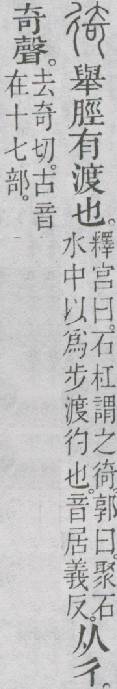 徛 舉脛有渡也。
釋宮曰。石杠謂之徛。郭曰。聚石
水中以爲步渡彴也。音居義反。
从彳。
奇聲。
去奇切。古音
在十七部。